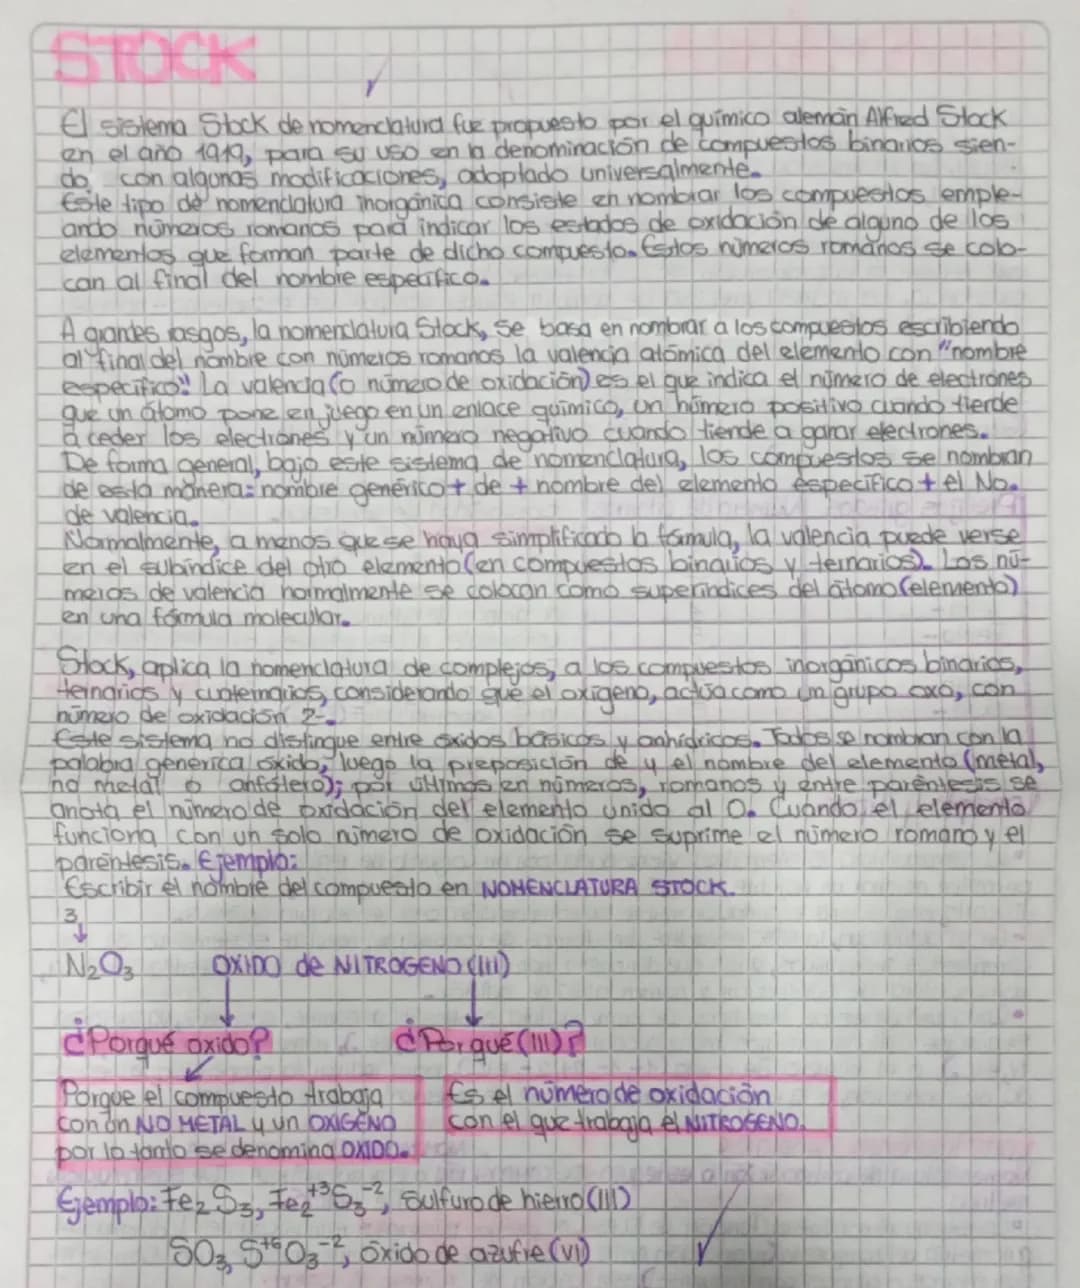 STOCK
El sistema Stock de nomenclatura fue propuesto por el químico alemán Alfred Stock
en el año 1919, para su uso en la denominación de compuestos binarios sien-
do, con algunas modificaciones, adoptado universalmente.
Este tipo de nomenclatura inorgánica consiste en nombrar los compuestos emple-
ando números romanos para indicar los estados de oxidación de alguno de los
elementos que forman parte de dicho compuesto. Estos números romanos se colo-
can al final del nombre específico.
A grandes rasgos, la nomenclatura Stock, se basa en nombrar a los compuestos escribiendo
al final del nombre con números romanos la valencia atómica del elemento con "nombre
específico". La valencia (o número de oxidación) es el que indica el número de electrones
que un átomo pone en juego en un enlace químico, un número positivo cuando tiende
a ceder los electrones y un número negativo cuando tiende a ganar electrones.
De forma general, bajo este sistema de nomenclatura, los compuestos se nombran
de esta manera: nombre genérico + de + nombre del elemento específico + el No.
de valencia.
Normalmente, a menos que se haya simplificado la fórmula, la valencia puede verse
en el subíndice del otro elemento (en compuestos binarios y ternarios). Los nú-
meros de valencia normalmente se colocan como superíndices del átomo (elemento)
en una fórmula molecular.
Stock, aplica la nomenclatura de complejos, a los compuestos inorgánicos binarios,
ternarios y cuaternarios, considerando que el oxígeno, actúa como un grupo oxo, con
número de oxidación 2-.
Este sistema no distingue entre óxidos básicos y anhídricos. Todos se nombran con la
palabra genérica óxido, luego la preposición de y el nombre del elemento (metal,
no metal o anfótero); por últimos en números, romanos y entre paréntesis se
anota el número de oxidación del elemento unido al O. Cuando el elemento
funciona con un solo número de oxidación se suprime el número romano y el
paréntesis. Ejemplo:
Escribir el nombre del compuesto en NOMENCLATURA STOCK.
3
↓
N₂O₃ OXIDO de NITROGENO (III)
¿Porqué oxido? ¿Porqué (III)?
Porque el compuesto trabaja
con un NO METAL y un OXIGENO
por lo tanto se denomina OXIDO.
Es el número de oxidación
con el que trabaja el NITROGENO.
Ejemplo: Fe₂S₃, Fe₂⁺³S₃⁻², Sulfuro de hierro (III)
SO₃, S⁺⁶O₃⁻², óxido de azufre (VI)